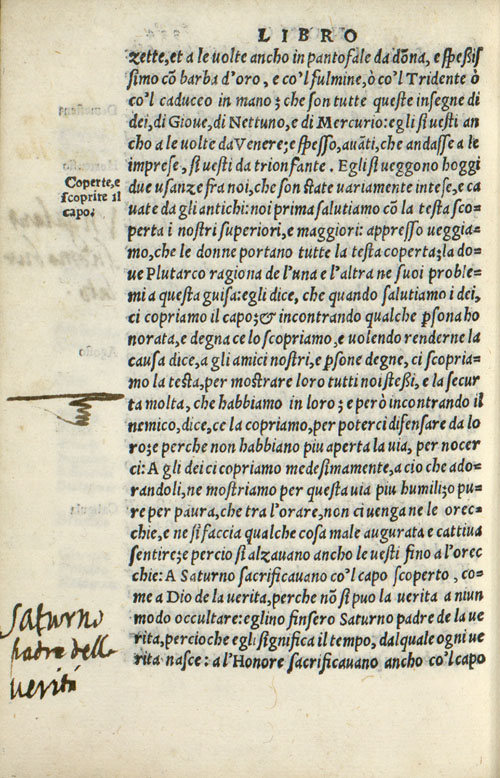 LIBRO
zette,et a le uolte ancho in pantofale da dōna, e speßis
simo cō barba d'oro, e co'l fulmine,ò co'l Tridente ò
co'l caduceo in mano; che son tutte queste insegne di
dei,di Gioue,di Nettuno,e di Mercurio:egli si uestì an
cho a le uolte da Venere;e spesso,auāti,che andasse a le
imprese, si uestì da trionfante. Egli si ueggono hoggi
Coperte,e
scoprire il
capo.
due usanze fra noi,che son state uariamente intese,e ca
uate da gli antichi:noi prima salutiamo cō la testa sco-
perta i nostri superiori,e maggiori: appresso ueggia-
mo,che le donne portano tutte la testa coperta;la do-
ue Plutarco ragiona de l'una e l'altra ne suoi proble-
mi a questa guisa:egli dice, che quando salutiamo i dei,
ci copriamo il capo;& incontrando qualche ꝑsona ho
norata,e degna ce lo scopriamo,e uolendo renderne la
causa dice,a gli amici nostri,e ꝑsone degne, ci scopria-
mo la testa,per mostrare loro tutti noi steßi, e la secur
ta molta, che habbiamo in loro; e però incontrando il
nemico,dice,ce la copriamo,per poterci difensare da lo
ro;e perche non habbiano piu aperta la uia, per nocer
ci: A gli dei ci copriamo medesimamente,a cio che ado-
randoli,ne mostriamo per questa uia piu humili;o pu-
re per paura,che tra l'orare,non ci uenga ne le orec-
chie,e ne si faccia qualche cosa male augurata e cattiua
sentire;e percio si alzauano ancho le uesti fino a l'orec
chie: A Saturno sacrificauano co'l capo scoperto, co-
me a Dio de la uerita,perche nō si puo la uerita a niun
modo occultare:eglino finsero Saturno padre de la ue
rita,percioche egli significa il tempo, dal quale ogni ue
rita nasce: a l'Honore sacrificauano ancho co'l capo
Saturno
padre della
uerità